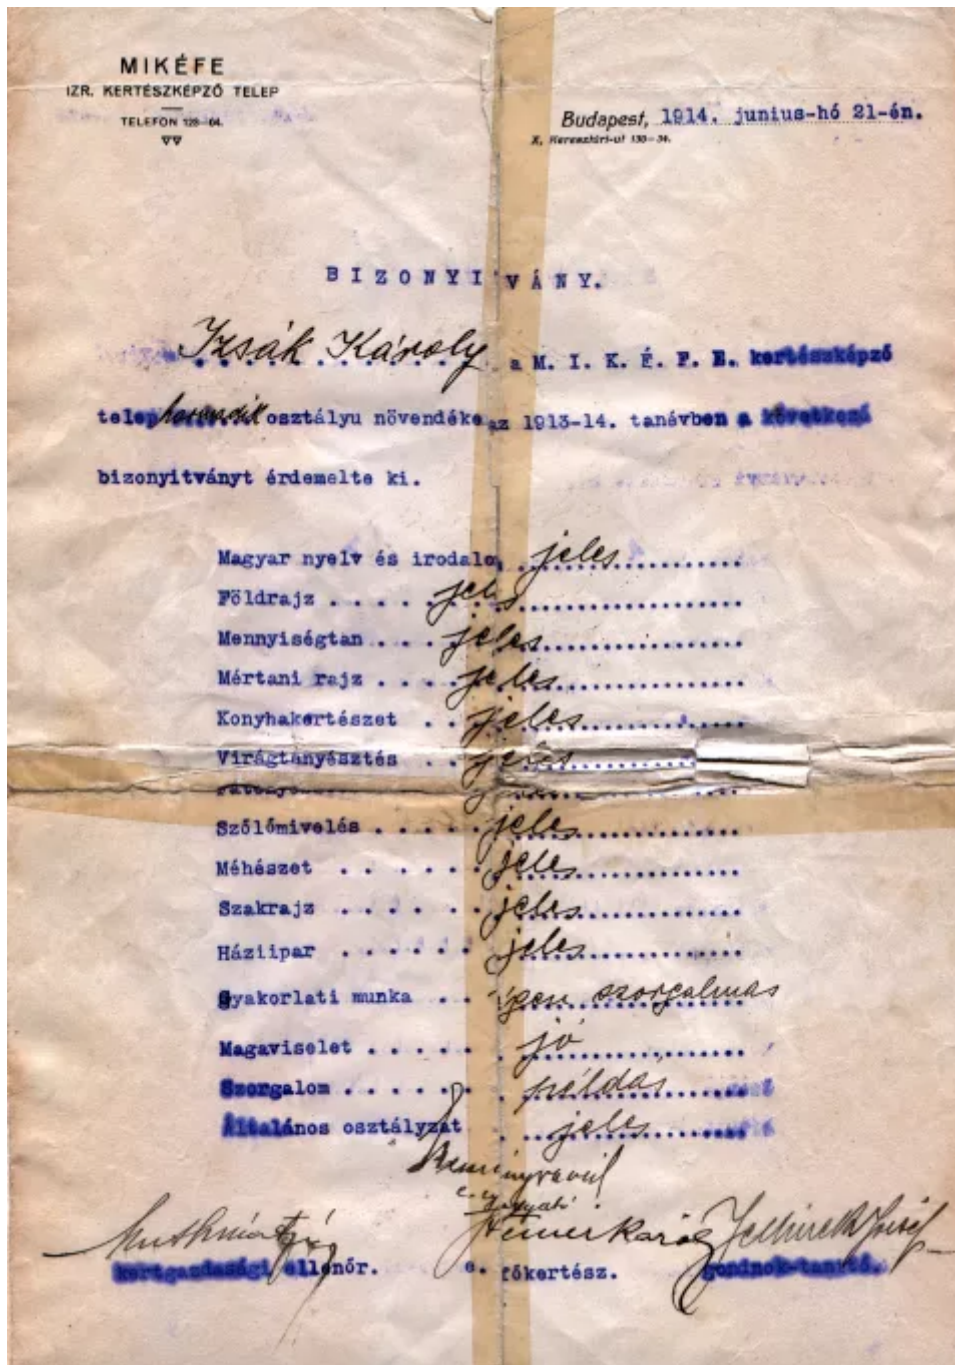 MIKÉFE
IZR. KERTÉSZKÉPZŐ TELEP
TELEFON 128-64.
Budapest, 1914. junius-hó 21-én.
X, Keresztúri-ut 130-34.
BIZONYITVÁNY.
Izsák Károly a M. I. K. É. F. E. kertészképző
telep harmadik osztályu növendéke az 1913-14. tanévben a következő
bizonyitványt érdemelte ki.
Magyar nyelv és irodalom jeles
Földrajz jeles
Mennyiségtan jeles
Mértani rajz jeles
Konyhakertészet jeles
Virágtenyésztés jeles
Szőlőmivelés jeles
Méhészet jeles
Szakrajz jeles
Háziipar jeles
Gyakorlati munka igen szorgalmas
Magaviselet jó
Szorgalom példás
Általános osztályzat jeles
Jellinek József
kertgazdasági ellenőr. e. főkertész. gondnok-tanitó.